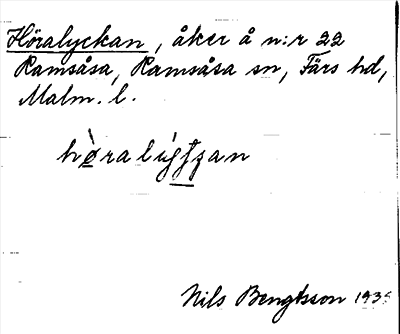 Höralyckan, åker å n:r 22
Ramsåsa, Ramsåsa sn, Färs hd,
Malm. l.
Nils Bengtsson